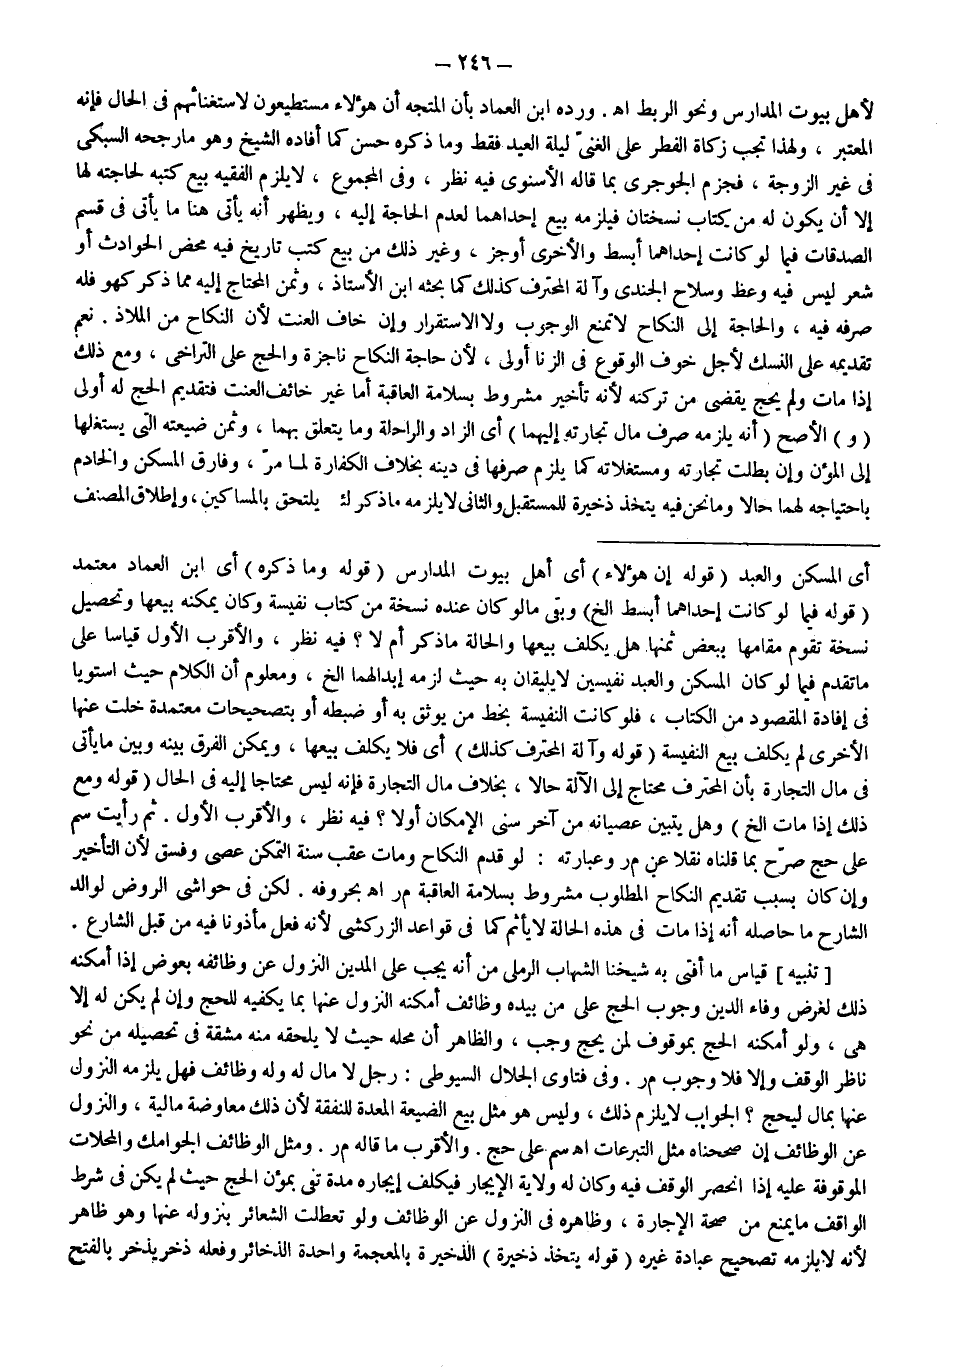 — ٢٤٦ —
لأهل بيوت المدارس ونحو الربط اهـ . ورده ابن العماد بأن المتجه أن هؤلاء مستطيعون لاستغنائهم فى الحال فإنه
المعتبر ، ولهذا تجب زكاة الفطر على الغنىّ ليلة العيد فقط وما ذكره حسن كما أفاده الشيخ وهو مارجحه السبكى
فى غير الزوجة ، فجزم الجوجرى بما قاله الأسنوى فيه نظر ، وفى المجموع ، لايلزم الفقيه بيع كتبه لحاجته لها
إلا أن يكون له من كتاب نسختان فيلزمه بيع إحداهما لعدم الحاجة إليه ، ويظهر أنه يأتى هنا ما يأتى فى قسم
الصدقات فيما لو كانت إحداهما أبسط والأخرى أوجز ، وغير ذلك من بيع كتب تاريخ فيه محض الحوادث أو
شعر ليس فيه وعظ وسلاح الجندى وآلة المحترف كذلك كما بحثه ابن الأستاذ ، وثمن المحتاج إليه مما ذكر كهو فله
صرفه فيه ، والحاجة إلى النكاح لاتمنع الوجوب ولاالاستقرار وإن خاف العنت لأن النكاح من الملاذ . نعم
تقديمه على النسك لأجل خوف الوقوع فى الزنا أولى ، لأن حاجة النكاح ناجزة والحج على التراخى ، ومع ذلك
إذا مات ولم يحج يقضى من تركته لأنه تأخير مشروط بسلامة العاقبة أما غير خائف العنت فتقديم الحج له أولى
( و ) الأصح ( أنه يلزمه صرف مال تجارته إليهما ) أى الزاد والراحلة وما يتعلق بهما ، وثمن ضيعته التى يستغلها
إلى المؤن وإن بطلت تجارته ومستغلاته كما يلزم صرفها فى دينه بخلاف الكفارة لمـا مرّ ، وفارق المسكن والخادم
باحتياجه لهما حالا ومانحن فيه يتخذ ذخيرة للمستقبل والثانى لايلزمه ماذكر لئلا يلتحق بالمساكين ، وإطلاق المصنف
أى المسكن والعبد ( قوله إن هؤلاء ) أى أهل بيوت المدارس ( قوله وما ذكره ) أى ابن العماد معتمد
( قوله فيما لو كانت إحداهما أبسط الخ ) وبقى مالو كان عنده نسخة من كتاب نفيسة وكان يمكنه بيعها وتحصيل
نسخة تقوم مقامها ببعض ثمنها هل يكلف بيعها والحالة ماذكر أم لا ؟ فيه نظر ، والأقرب الأول قياسا على
ماتقدم فيما لو كان المسكن والعبد نفيسين لايليقان به حيث لزمه إبدالهما الخ ، ومعلوم أن الكلام حيث استويا
فى إفادة المقصود من الكتاب ، فلو كانت النفيسة بخط من يوثق به أو ضبطه أو بتصحيحات معتمدة خلت عنها
الأخرى لم يكلف بيع النفيسة ( قوله وآلة المحترف كذلك ) أى فلا يكلف بيعها ، ويمكن الفرق بينه وبين مايأتى
فى مال التجارة بأن المحترف محتاج إلى الآلة حالا ، بخلاف مال التجارة فإنه ليس محتاجا إليه فى الحال ( قوله ومع
ذلك إذا مات الخ ) وهل يتبين عصيانه من آخر سنى الإمكان أولا ؟ فيه نظر ، والأقرب الأول . ثم رأيت سم
على حج صرّح بما قلناه نقلا عن مر وعبارته : لو قدم النكاح ومات عقب سنة التمكن عصى وفسق لأن التأخير
وإن كان بسبب تقديم النكاح المطلوب مشروط بسلامة العاقبة مر اهـ بحروفه . لكن فى حواشى الروض لوالد
الشارع ما حاصله أنه إذا مات فى هذه الحالة لايأثم كما فى قواعد الزركشى لأنه فعل مأذونا فيه من قبل الشارع .
[ تنبيه ] قياس ما أفتى به شيخنا الشهاب الرملى من أنه يجب على المدين النزول عن وظائفه بعوض إذا أمكنه
ذلك لغرض وفاء الدين وجوب الحج على من بيده وظائف أمكنه النزول عنها بما يكفيه للحج وإن لم يكن له إلا
هى ، ولو أمكنه الحج بموقوف لمن يحج وجب ، والظاهر أن محله حيث لا يلحقه منه مشقة فى تحصيله من نحو
ناظر الوقف وإلا فلا وجوب مر . وفى فتاوى الجلال السيوطى : رجل لا مال له وله وظائف فهل يلزمه النزول
عنها بمال ليحج ؟ الجواب لايلزم ذلك ، وليس هو مثل بيع الضيعة المعدة للنفقة لأن ذلك معاوضة مالية ، والنزول
عن الوظائف إن صححناه مثل التبرعات اهـ سم على حج . والأقرب ما قاله مر . ومثل الوظائف الجوامك والمحلات
الموقوفة عليه إذا انحصر الوقف فيه وكان له ولاية الإيجار فيكلف إيجاره مدة تفى بمؤن الحج حيث لم يكن فى شرط
الواقف مايمنع من صحة الإجارة ، وظاهره فى النزول عن الوظائف ولو تعطلت الشعائر بنزوله عنها وهو ظاهر
لأنه لايلزمه تصحيح عبادة غيره ( قوله يتخذ ذخيرة ) الذخيرة بالمعجمة واحدة الذخائر وفعله ذخر يذخر بالفتح